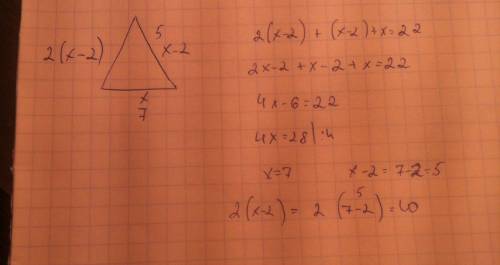 2(x-2)
5
x-2
x
7
2(x-2) + (x-2)+x=22
2x-2+x-2+x=22
4x-6=22
4x=28|:4
x=7 x-2=7-2=5
5
2(x-2) = 2 (7-2)=10